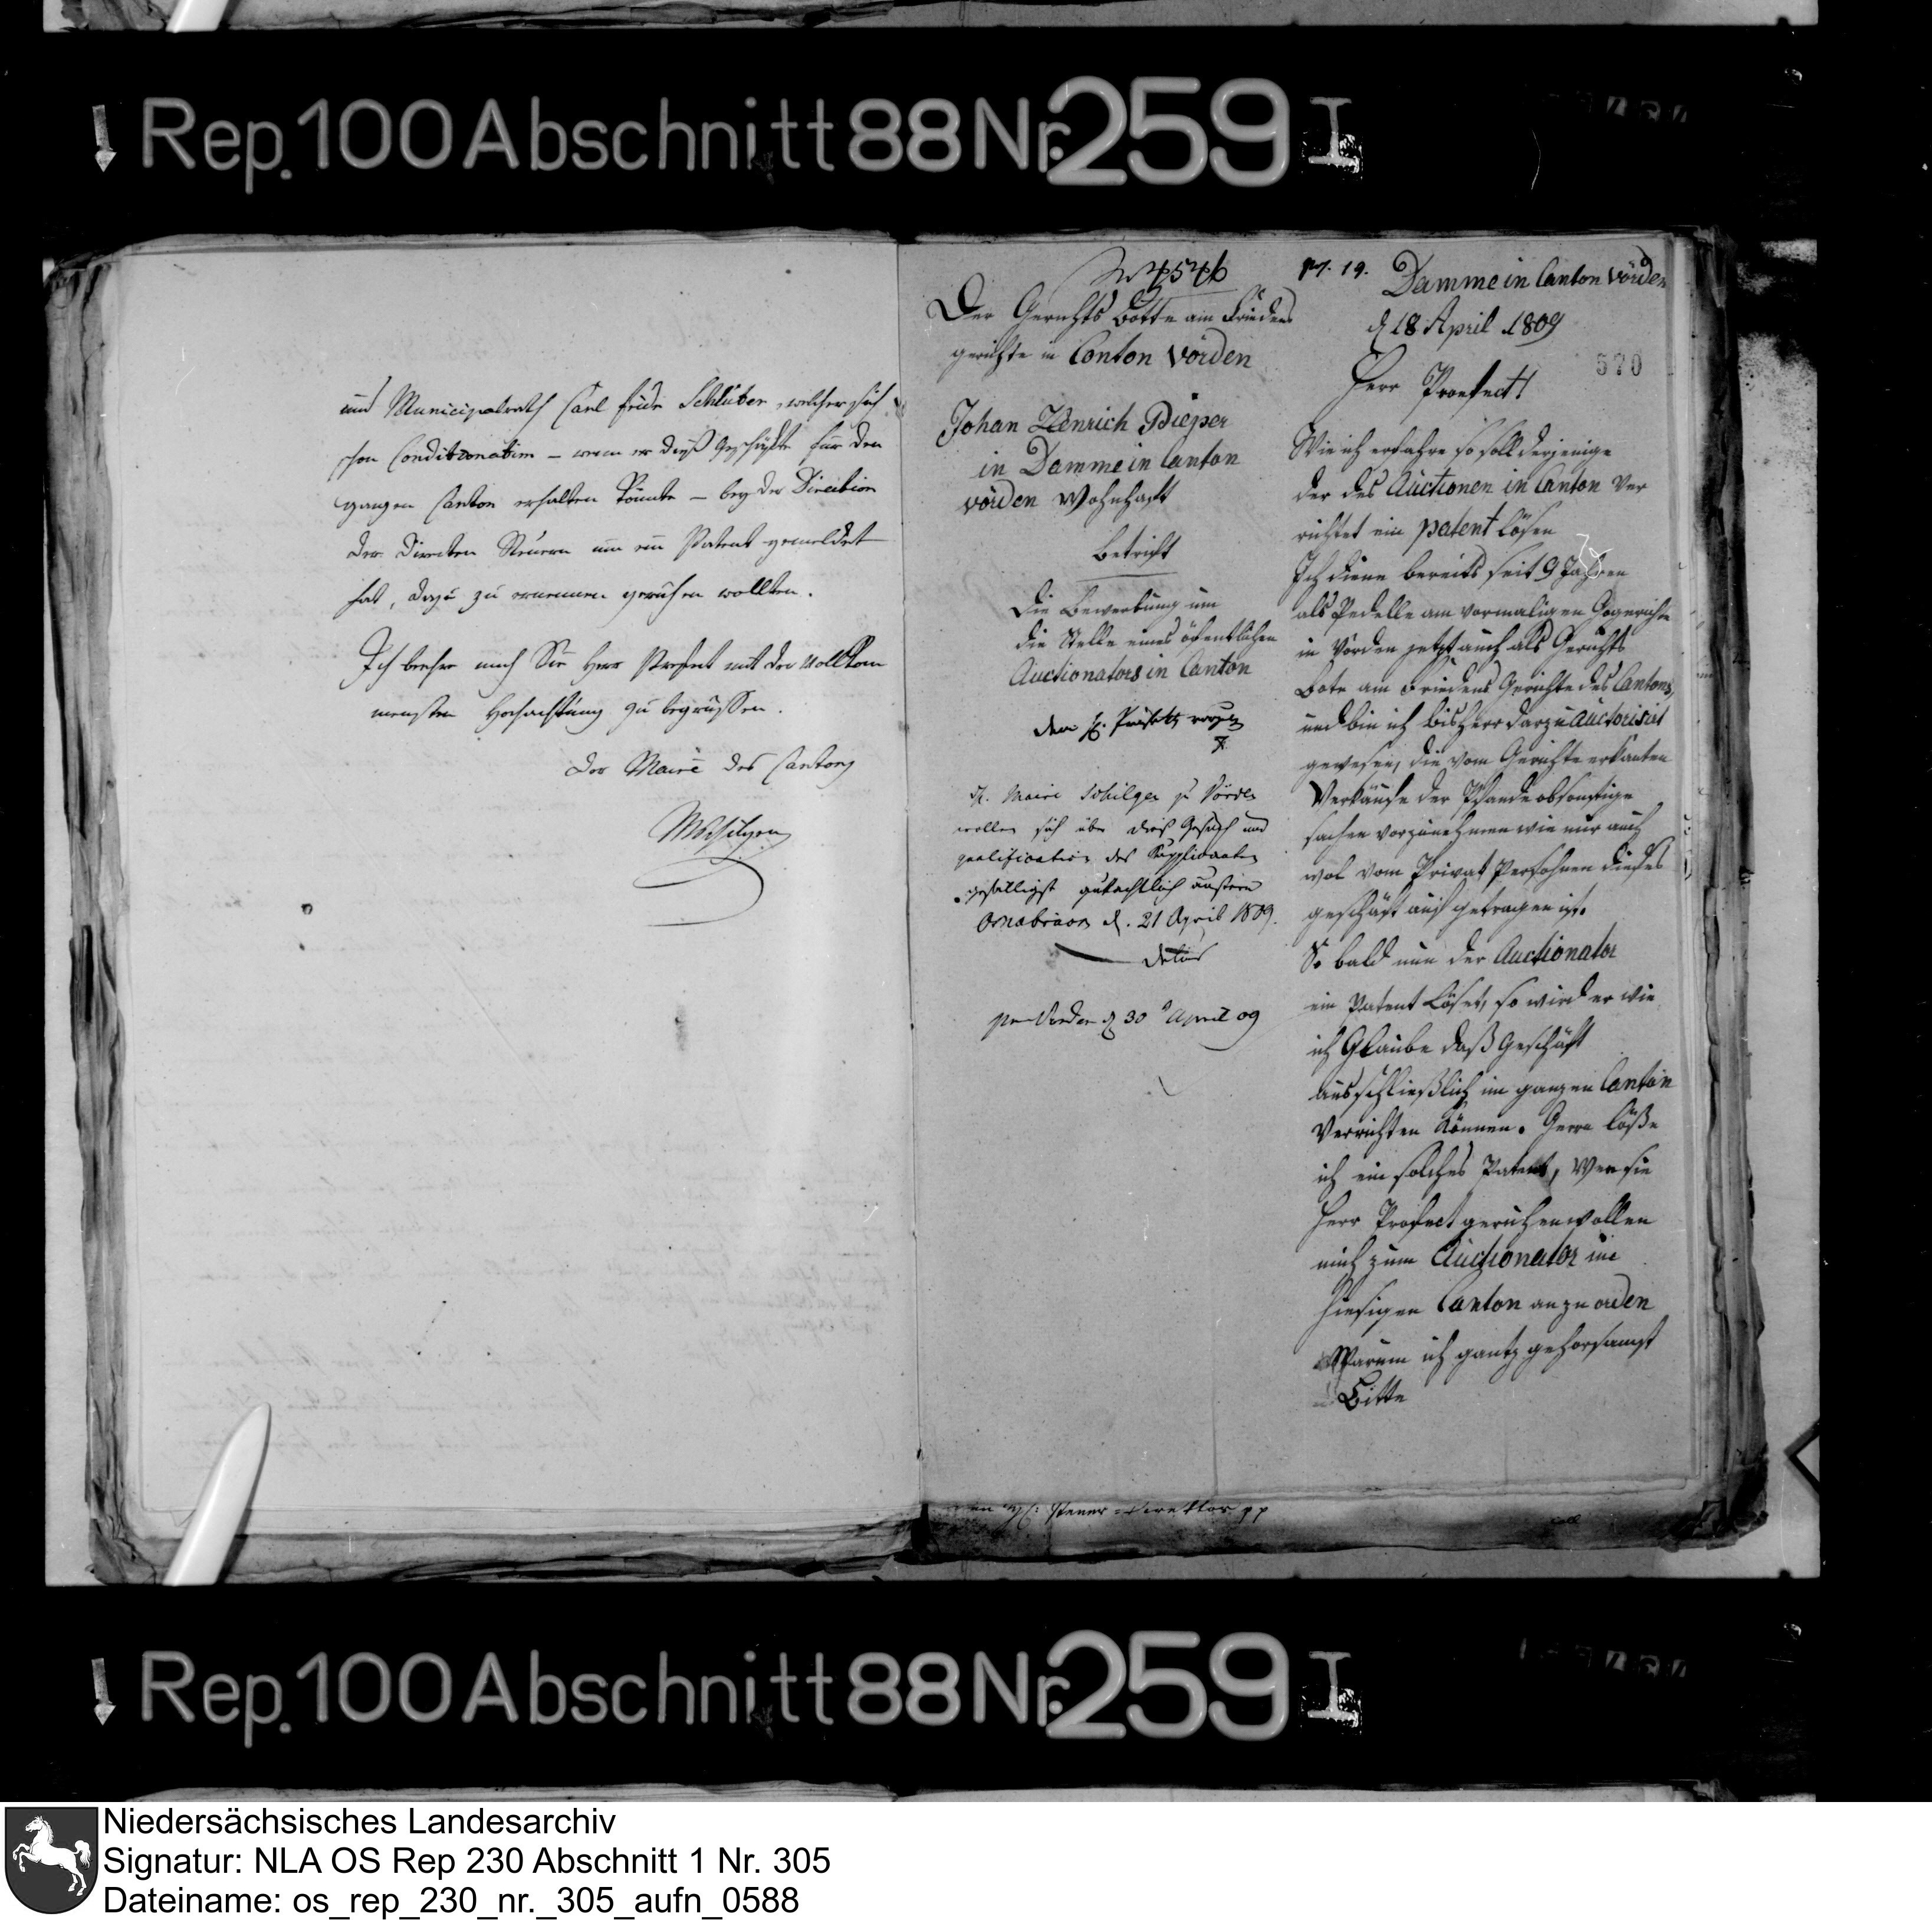 Rep. 100 Abschnitt 88 Nr. 259 I
und Municipalrath Carl Fridr Schlüter, welcher sich
schon Conditionatim – wenn er dieß Geschäfte für den
ganzen Canton erhalten könnte – bey der Direction
der Directen Steuern um ein Patent gemeldet
hat, dazu zu ernennen geruhen wollten.
Ich beehre mich Sie Herr Präfect mit der vollkom
mensten Hochachtung zu begrüssen.
Der Maire des Cantons
N 4546
Der Gerichts Botte am Friedens
gerichte in Canton Vörden
Johan Henrich Dieper
in Damme in Canton
Vörden Wohnhaft
Betricht
Die Bewerbung um
die Stelle eines öfentlichen
Auctionators in Canton
H. Maire zu Vörden
wollen sich über dieß Gesuch und
qualification des Supplicanten
gefälligst gutachtlich äussern
Osnabrück d. 21 April 1809.
pr Vörden d 30 April 09
pr. 19.
Damme in Canton Vörden
d 18 April 1809
570
Herr Praefect!
Wie ich erfahre so soll derjenige
der des Auctionen in Canton Ver
richtet ein patent lösen
Ich diene bereits seit 9 Jahren
als Pedelle am vormaligen Gogerichte
in Vörden jetzt auch als Gerichts
Bote am Friedens Gerichte des Cantons,
und bin ich bisherr darzu auctorisirt
gewesen, die vom Gerichte erkanten
Verkäufe der Pfande obsonstige
sachen vorzunehmen wie mir auch
wol vom Privat Persohnen dieses
geschäft aufgetragen ist.
So bald nun der Auctionator
ein Patent Löset, so wird er wie
ich Glaube daß Geschäft
Ausschließlich im ganzen Canton
Verrichten Können. Gern löße
ich ein solches Patent, Wen sie
Herr Präfect geruhen wollen
mich zum Auctionator im
hiesigen Canton anzuorden
Warum ich gantz gehorsamst
Bitte
Steuer=Direktor pp
Rep. 100 Abschnitt 88 Nr. 259 I
Niedersächsisches Landesarchiv
Signatur: NLA OS Rep 230 Abschnitt 1 Nr. 305
Dateiname: os_rep_230_nr._305_aufn_0588